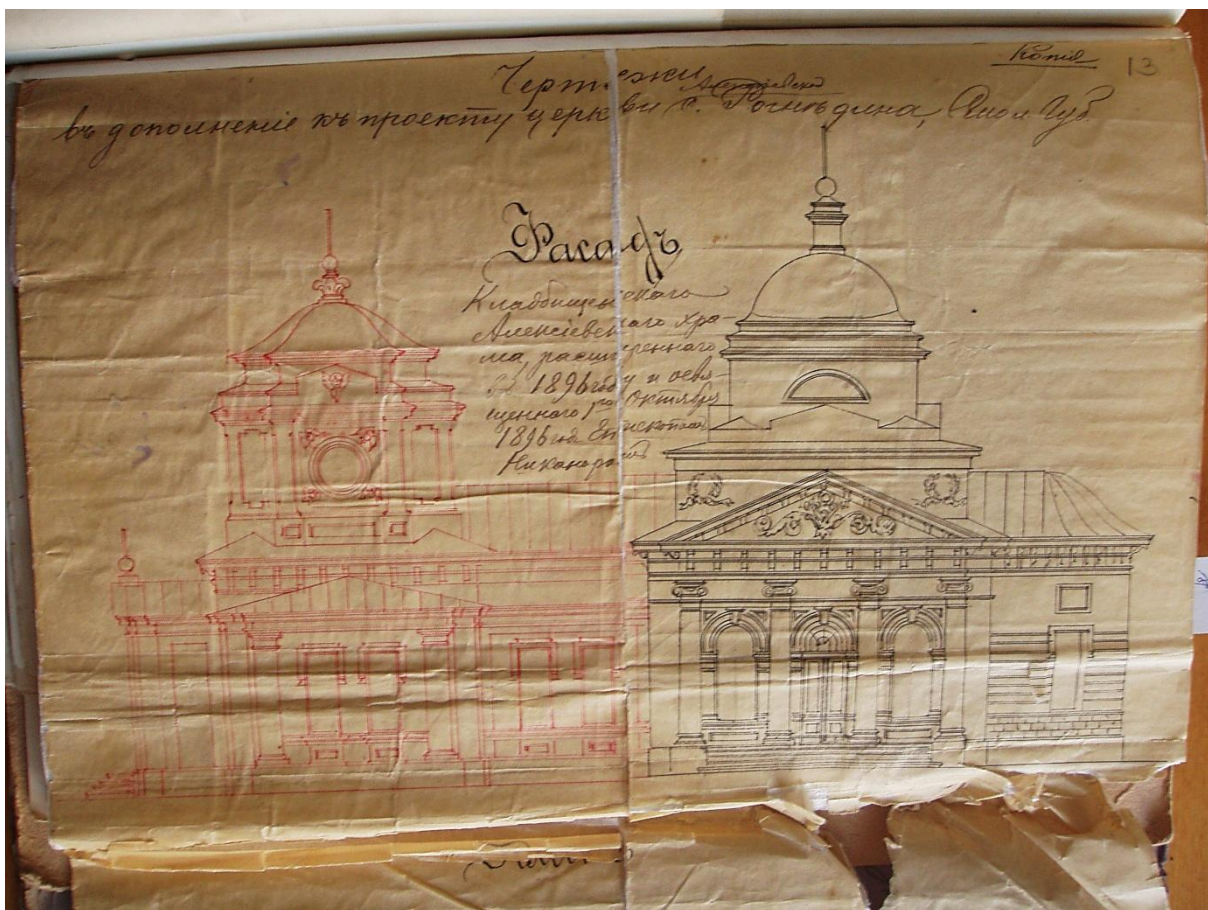 Копія 13
Чертежи
въ дополненіе къ проекту церкви с. Рогнѣдина, Смол. Губ.
Фасадъ
Кладбищенскаго
Алексіевскаго хра-
ма, расширеннаго
въ 1896 году и освя-
щеннаго 1го Октября
1896 года Епископомъ
Никаноромъ